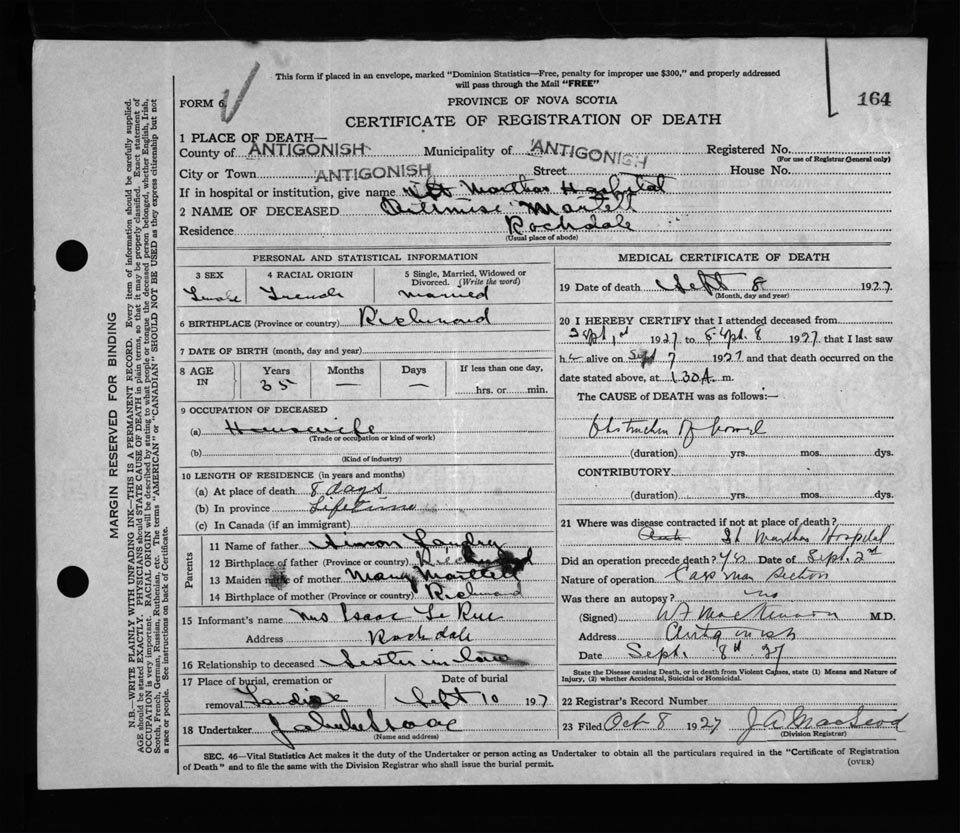 This form if placed in an envelope, marked "Dominion Statistics—Free, penalty for improper use $300," and properly addressed
will pass through the Mail "FREE"
FORM 6.
PROVINCE OF NOVA SCOTIA
164
CERTIFICATE OF REGISTRATION OF DEATH
1 PLACE OF DEATH—
County of ANTIGONISH Municipality of ANTIGONISH Registered No.
(For use of Registrar General only)
City or Town ANTIGONISH Street House No.
If in hospital or institution, give name St Marthas Hospital
2 NAME OF DECEASED Martell
Residence Rockdale
(Usual place of abode)
PERSONAL AND STATISTICAL INFORMATION
3 SEX 4 RACIAL ORIGIN 5 Single, Married, Widowed or Divorced. (Write the word)
Female French married
6 BIRTHPLACE (Province or country) Richmond
7 DATE OF BIRTH (month, day and year)
8 AGE IN Years Months Days If less than one day,
35 — — hrs. or min.
9 OCCUPATION OF DECEASED
(a) Housewife
(Trade or occupation or kind of work)
(b)
(Kind of industry)
10 LENGTH OF RESIDENCE (in years and months)
(a) At place of death 8 days
(b) In province Lifetime
(c) In Canada (if an immigrant)
Parents
11 Name of father Simon Landry
12 Birthplace of father (Province or country)
13 Maiden name of mother Mary Martell
14 Birthplace of mother (Province or country) Richmond
15 Informant's name Mrs Isaac Le Rue
Address Rockdale
16 Relationship to deceased Sister in law
17 Place of burial, cremation or removal Date of burial
Sept 10 1927
18 Undertaker
(Name and address)
MEDICAL CERTIFICATE OF DEATH
19 Date of death Sept 8 1927
(Month, day and year)
20 I HEREBY CERTIFY that I attended deceased from
Sept 1st 1927 to Sept. 8 1927 that I last saw
her alive on Sept 7 1927 and that death occurred on the
date stated above, at 1.30 A. m.
The CAUSE of DEATH was as follows:—
Obstruction of bowel
(duration) yrs. mos. dys.
CONTRIBUTORY
(duration) yrs. mos. dys.
21 Where was disease contracted if not at place of death?
St Marthas Hospital
Did an operation precede death? yes Date of Sept. 2nd
Nature of operation Section
Was there an autopsy? no
(Signed) W F MacKinnon M.D.
Address Antigonish
Date Sept. 8th 27
State the Disease causing Death, or in death from Violent Causes, state (1) Means and Nature of
Injury, (2) whether Accidental, Suicidal or Homicidal.
22 Registrar's Record Number
23 Filed Oct 8 1927 J A MacLeod
(Division Registrar)
SEC. 46—Vital Statistics Act makes it the duty of the Undertaker or person acting as Undertaker to obtain all the particulars required in the "Certificate of Registration
of Death" and to file the same with the Division Registrar who shall issue the burial permit.
(OVER)
MARGIN RESERVED FOR BINDING
N.B.—WRITE PLAINLY WITH UNFADING INK—THIS IS A PERMANENT RECORD. Every item of information should be carefully supplied.
AGE should be stated EXACTLY. PHYSICIANS should STATE CAUSE OF DEATH in plain terms, so that it may be properly classified. Exact statement of
OCCUPATION is very important. RACIAL ORIGIN will be described by stating to what people or tongue the deceased person belonged, whether English, Irish,
Scotch, French, German, Russian, Ruthenian, etc. The terms "AMERICAN" or "CANADIAN" SHOULD NOT BE USED as they express citizenship but not
a race or people. See instructions on back of Certificate.